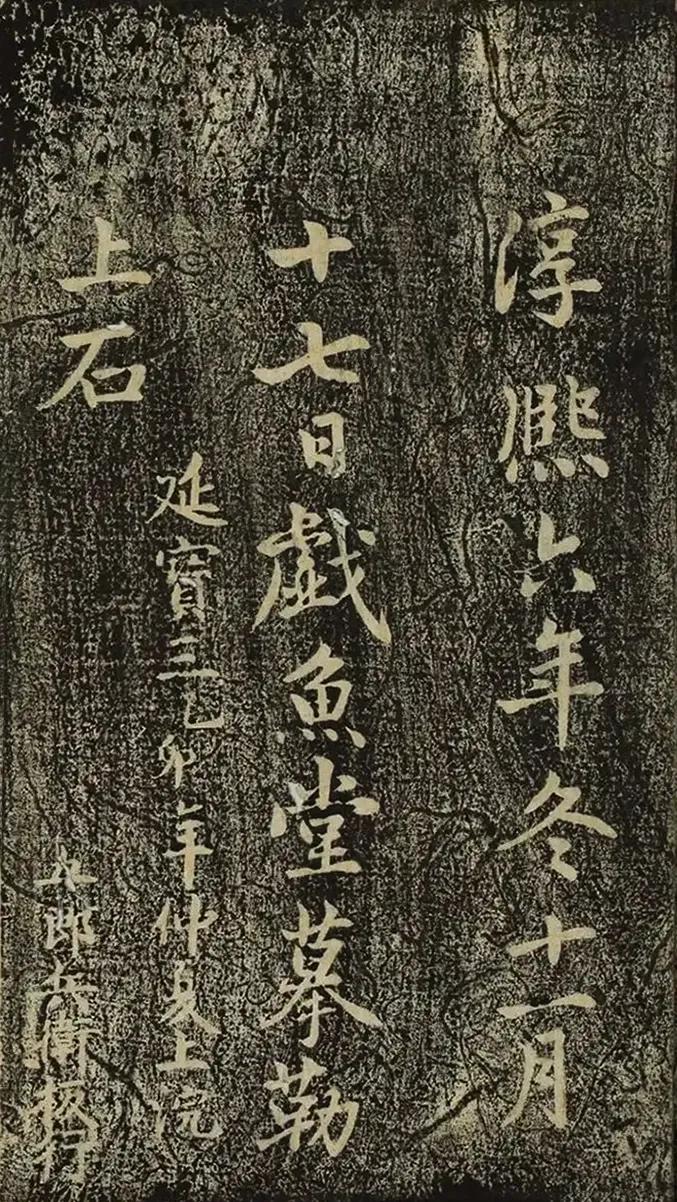 淳熙六年冬十一月
十七日戲魚堂摹勒
上石
延寳三乙卯年仲夏上浣
郎兵衛板行